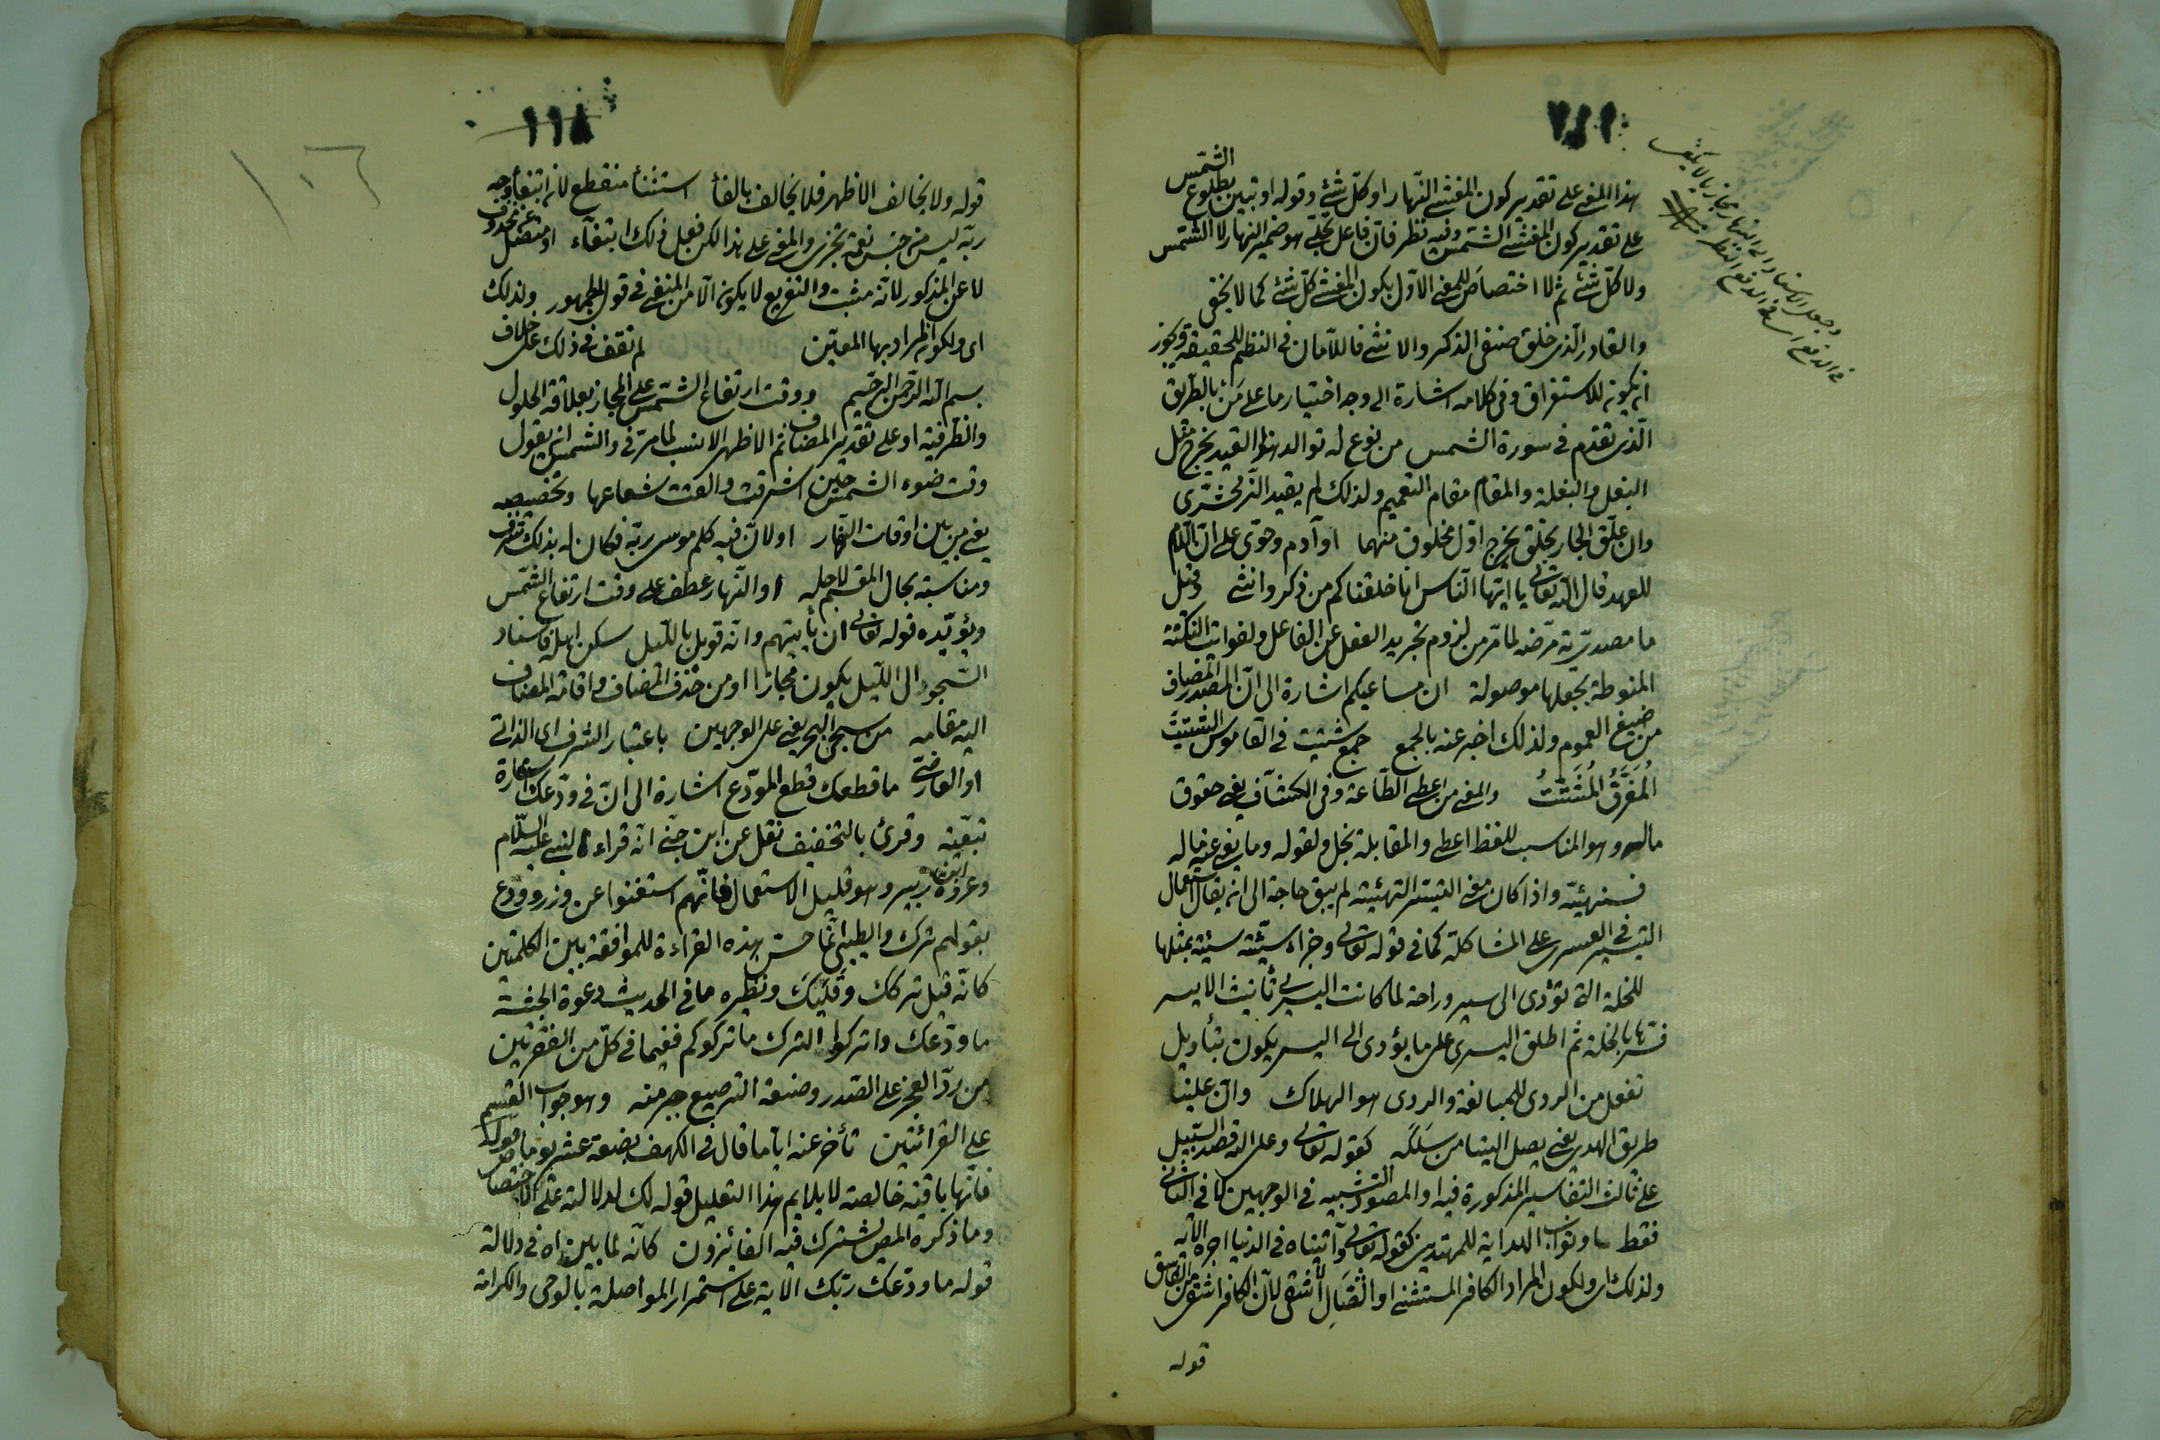 هذا المعنى على تقدير كون المغشى النهار او كل شئ وقوله او تبين بطلوع الشمس
على تقدير كون المغشى الشمس وفيه نظر فان فاعل تجلى هو ضمير النهار لا الشمس
ولا كل شئ ثم لا اختصاص للمعنى الاول بكون المغشى كل شئ كما لا يخفى
والقادر الذى خلق صنفى الذكر والانثى فاللامان فى النظم للحقيقة ويجوز
ان يكون للاستغراق وفى كلامه اشارة الى وجه اختيار ما على من بالطريق
الذى تقدم فى سورة الشمس من نوع له توالد هذا القيد يخرج مثل
البغل والبغلة والمقام مقام التعميم ولذلك لم يقيد الزمخشرى
وان علق الجار بخلق يخرج اول مخلوق منهما او آدم وحوى على ان اللام
للعهد قال الله تعالى يا ايها الناس انا خلقناكم من ذكر وانثى وقيل
ما مصدرية مرضه لما مر من لزوم تجريد الفعل عن الفاعل ولفوات النكتة
المنوطة بجعلها موصولة ان مساعيكم اشارة الى ان المصدر المضاف
من صيغ العموم ولذلك اخبر عنه بالجمع جمع شتيت فى القاموس الشتيت
المفرق المشتت والمعنى من اعطى الطاعة وفى الكشاف يعنى حقوق
ماله وهو المناسب للفظ اعطى والمقابلة بخل ولقوله وما يغنى عنه ماله
فسنهيئه واذا كان معنى التيسر التهيئة لم يبق حاجة الى ان يقال استعمال
التيسير فى العسرى على المشاكلة كما فى قوله تعالى وجزاء سيئة سيئة بمثلها
للخلة التى تؤدى الى يسر وراحة لما كانت اليسرى تأنيث الايسر
فسرها بالخلة ثم اطلق اليسرى على ما يؤدى الى اليسر يكون بتأويل
تفعل من الردى للمبالغة والردى هو الهلاك وان علينا
طريق الهدى يعنى يصل الينا من سلكه كقوله تعالى وعلى الله قصد السبيل
على ثالث التفاسير المذكورة فيه او المقصود التشبيه فى الوجهين لا فى الثانى
فقط او ثواب الهداية للمهتدين كقوله تعالى وآتيناه فى الدنيا اجره الآية
ولذلك اى ولكون المراد الكافر المستثنى او الصال لا شقى لان الكافر اشقى من الفاسق
قوله
قوله ولا يخالف الا ظهر فلا يخالف بالفأ استثنأ منقطع لان ابتغأ وجه
ربه ليس من جنس نعمة تجزى والمعنى على هذا لكن فعل ذلك ابتغأء او متصل عن محذوف
لا عن المذكور لانه مثبت والتفريغ لا يكون الا من المنفى فى قول الجمهور ولذلك
اى ولكونه المراد بها المعين لم نقف فى ذلك على خلاف
بسم الله الرحمن الرحيم ووقت ارتفاع الشمس على المجاز بعلاقة الحلول
والظرفية او على تقدير المضاف ثم الاظهر الانسب لما مر فى والشمس ان يقول
وقت ضوء الشمس حين اشرقت والقت شعاعها وتخصيصه
يعنى من بين اوقات النهار او لان فيه كلم موسى ربه فكان له بذلك شرف
ومناسبة بحال المقسم لاجله او النهار عطف على وقت ارتفاع الشمس
ويؤيده قوله تعالى ان يأتيهم وانه قوبل بالليل سكن اهله فاسناد
السجو الى الليل يكون مجازا او من حذف المضاف واقامة المضاف
اليه مقامه من سجى البحر يعنى على الوجهين باعتبار الشرف اى الذاتى
او العارضى ما قطعك قطع المودع اشارة الى ان فى ودعك استعارة
تبعية وقرئ بالتخفيف نقل عن ابن جنى انه قراءة النبى عليه السلام
وعروة ابن زبير وهو قليل الاستعمال فانهم استغنوا عن وذر وودع
بقولهم ترك والطيبى انما حسن هذه القراءة للموافقة بين الكلمتين
كانه قيل تركك وقليك ونظيره ما فى الحديث دعوة الحبشة
ما ودعوك واتركوا الترك ما تركوكم ففيها فى كل من الفقرتين
من رد العجز على الصدر وصنعة الترصيع وهو جواب القسم
على القرائتين تأخر عنه اياما قال فى الكهف بضعة عشر يوما قوله
فانها باقية خالصة لا يلايم هذا التعليل قوله لك لدلالته على الاختصاص
وما ذكره المص يشترك فيه الفائزون كانه لما بين اه فى دلالة
قوله ما ودعك ربك الآية على استمرار المواصلة بالوحى والكرامة